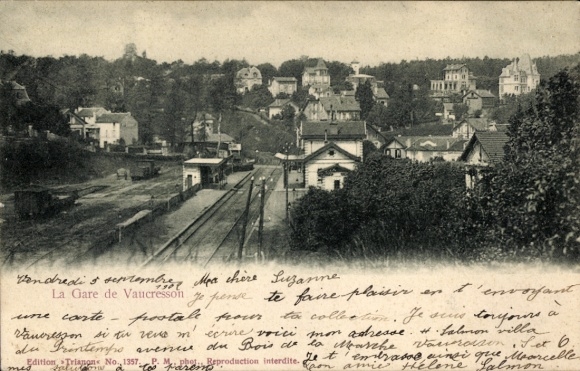 Vendredi 5 septembre Ma chère Suzanne
1902
La Gare de Vaucresson Je pense te faire plaisir en t'envoyant
une carte-postale pour ta collection. Je suis toujours à
Vaucresson si tu veux m'écrire voici mon adresse H. Salmon villa
du Printemps avenue du Bois de la Marche Vaucresson. S. et O.
Edition «Trianon» No. 1357. P. M. phot. Reproduction interdite. Je t'embrasse ainsi que Marcelle
mes à tes parents Ton amie Hélène Salmon